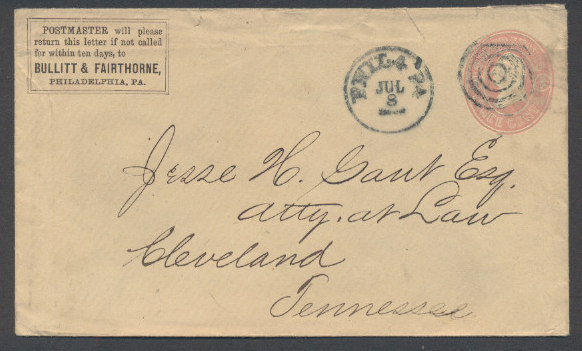 POSTMASTER will please
return this letter if not called
for within ten days, to
BULLITT & FAIRTHORNE,
PHILADELPHIA, PA.
PHIL'A PA
JUL
8
Jesse H. Gaut Esq.
Atty. at Law
Cleveland
Tennessee